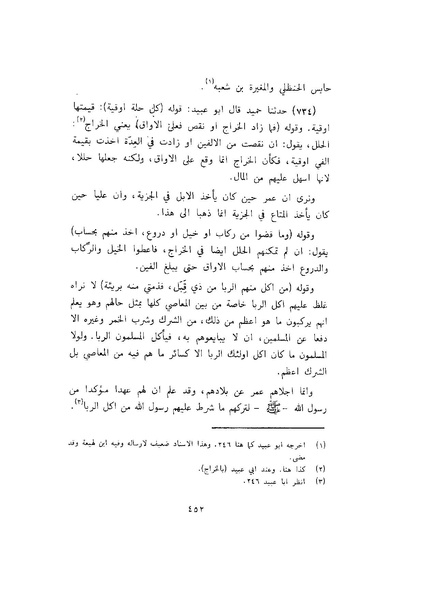 حابس الحنظلي والمغيرة بن شعبه(١).
(٧٣٤) حدثنا حميد قال ابو عبيد: قوله (كل حلة اوقية): قيمتها
اوقية. وقوله (فما زاد الخراج او نقص فعلى الاواق) يعني الخراج(٢):
الحلل، يقول: ان نقصت من الالفين او زادت في العدّة اخذت بقيمة
الفي اوقية، فكأن الخراج انما وقع على الاواق، ولكنه جعلها حللا،
لانها اسهل عليهم من المال.
ونرى ان عمر حين كان يأخذ الابل في الجزية، وان عليا حين
كان يأخذ المتاع في الجزية انما ذهبا الى هذا.
وقوله (وما قضوا من ركاب او خيل او دروع، اخذ منهم بحساب)
يقول: ان لم تمكنهم الحلل ايضا في الخراج، فاعطوا الخيل والركاب
والدروع اخذ منهم بحساب الاواق حتى يبلغ الفين.
وقوله (من اكل منهم الربا من ذي قِبَل، فذمتي منه بريئة) لا نراه
غلظ عليهم اكل الربا خاصة من بين المعاصي كلها بمثل حالهم وهو يعلم
انهم يركبون ما هو اعظم من ذلك، من الشرك وشرب الخمر وغيره الا
دفعا عن المسلمين، ان لا يبايعوهم به، فيأكل المسلمون الربا. ولولا
المسلمون ما كان اكل اولئك الربا الا كسائر ما هم فيه من المعاصي بل
الشرك اعظم.
وانما اجلاهم عمر عن بلادهم، وقد علم ان لهم عهدا مؤكدا من
رسول الله - ﷺ - لتركهم ما شرط عليهم رسول الله من اكل الربا(٣).
(١) اخرجه ابو عبيد كما هنا ٢٤٦. وهذا الاسناد ضعيف لارساله وفيه ابن لهيعة وقد
مضى.
(٢) كذا هنا. وعند ابي عبيد (بالخراج).
(٣) انظر ابا عبيد ٢٤٦.
٤٥٢